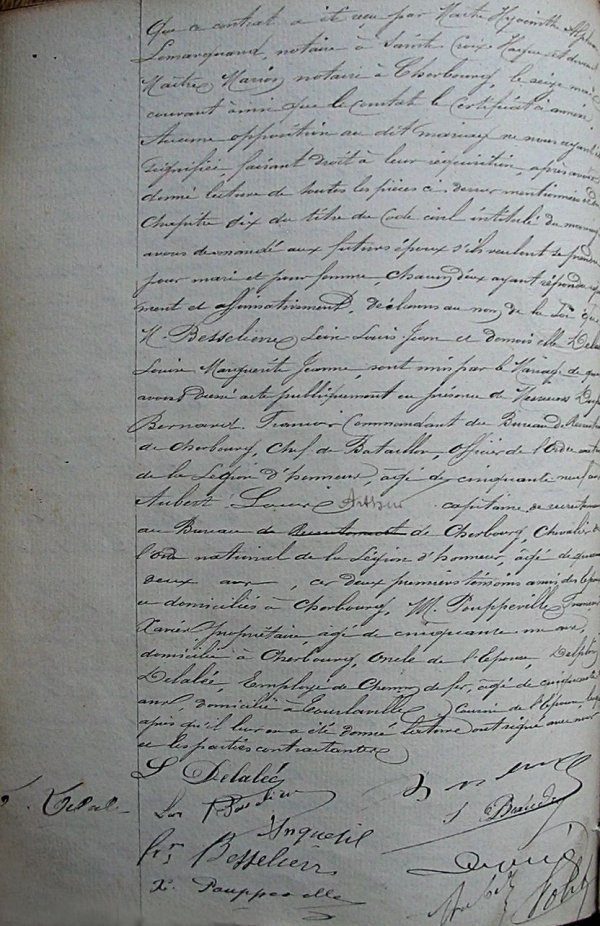 que ce contrat a été reçu par Maître Hyacinthe Alphon
Lemarquand, notaire à Sainte Croix Hague et devant
Maître Marion notaire à Cherbourg, le seize mai
courant ainsi que le constate le certificat ci annexé.
Aucune opposition au dit mariage ne nous ayant été
signifiée faisant droit à leur réquisition, après avoir
donné lecture de toutes les pièces ci dessus mentionnées et du
chapitre six du titre du Code civil intitulé du mariage
avons demandé aux futurs époux s'ils veulent se prendre
pour mari et pour femme, chacun d'eux ayant répondu
ment et affirmativement, déclarons au nom de la Loi que
M. Besselièvre Léon Louis Jean et demoiselle Dela
Louise Marguerite Jeanne, sont unis par le Mariage de quoi
avons dressé acte publiquement en présence de Messieurs
Bernard François Commandant du Bureau de Recrute
de Cherbourg, Chef de Bataillon, officier de l'Ordre
de la Légion d'honneur, âgé de cinquante neuf ans
Aubert Louis Arthur capitaine de recrutement
au Bureau de Recrutement de Cherbourg, Chevalier de
l'Ordre national de la Légion d'honneur, âgé de quarante
deux ans, ces deux premiers témoins amis des époux
et domiciliés à Cherbourg, M. Pouppeville François
Xavier propriétaire, âgé de cinquante un ans,
domicilié à Cherbourg, Oncle de l'épouse, Delphin
Delalée, Employé de Chemin de fer, âgé de cinquante
ans, domicilié à Tourlaville, Cousin de l'épouse,
après qu'il leur en a été donné lecture ont signé avec nous
et les parties contractantes
L Delalée
Anquetil
Besselièvre
X. Pouppeville
Aubert